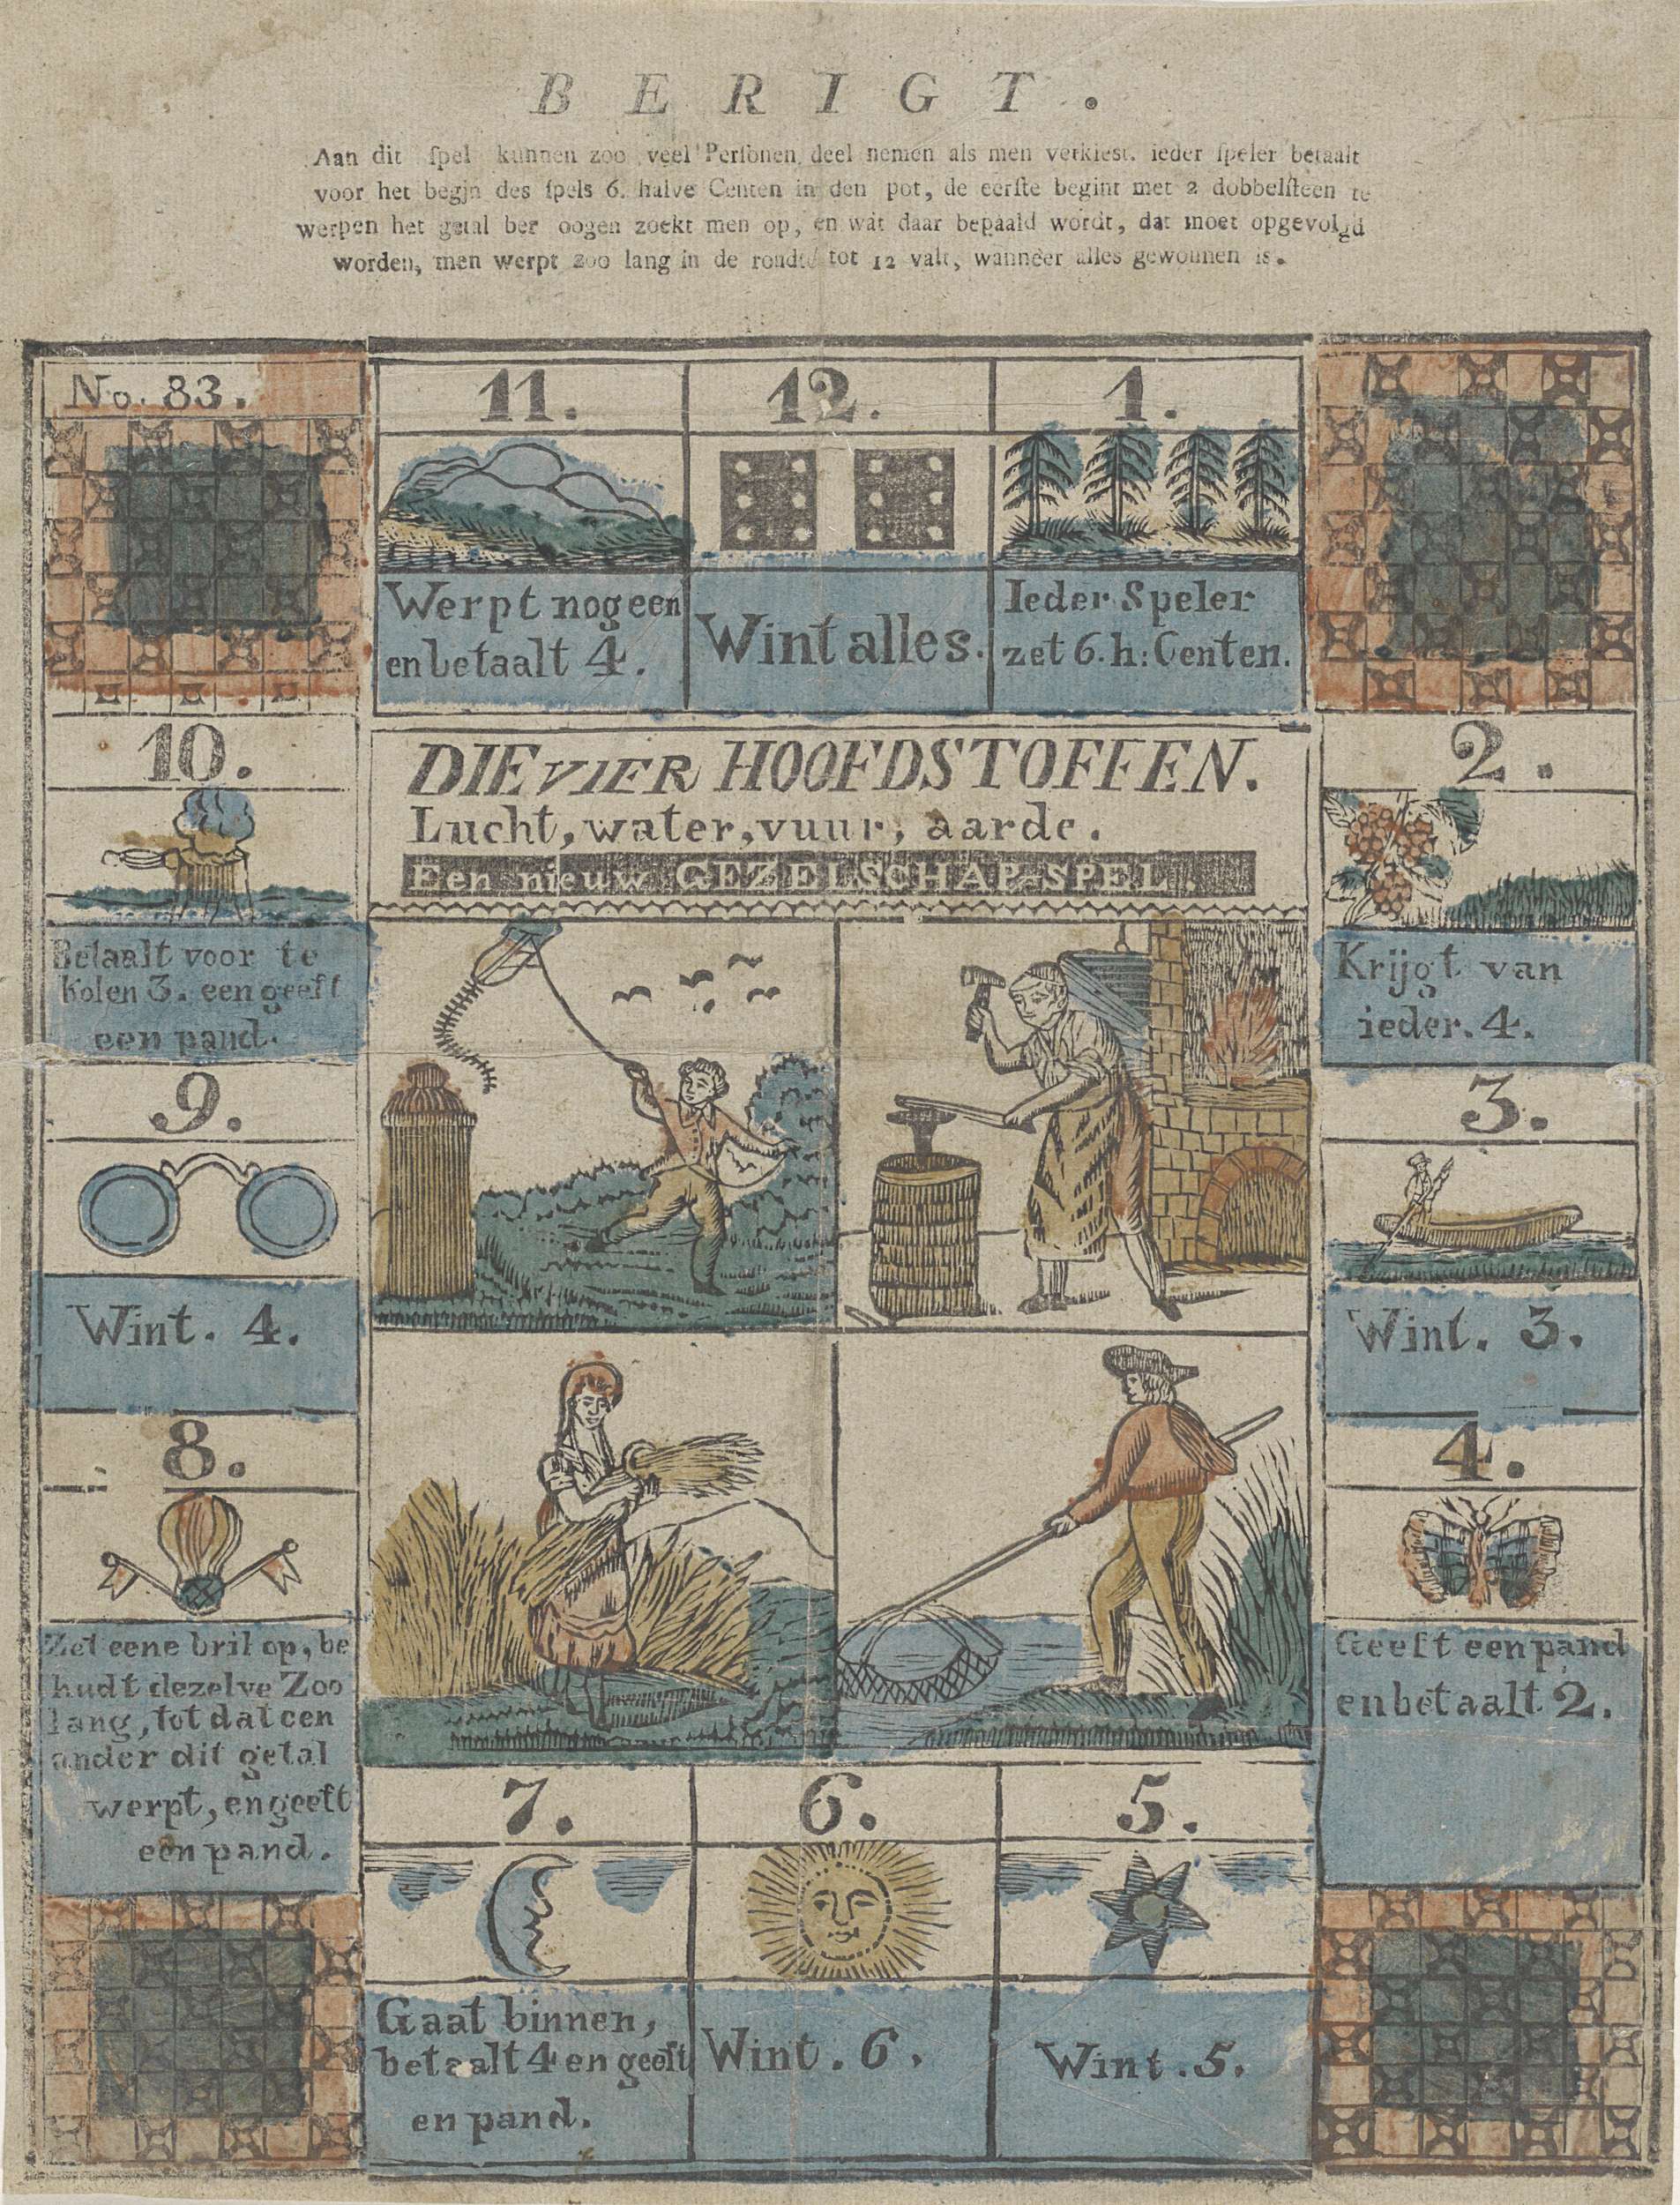 BERIGT.
Aan dit ſpel kunnen zoo veel Perſonen deel nemen als men verkiest. ieder ſpeler betaalt
voor het begjn des ſpels 6. halve Centen in den pot, de eerſte begint met 2 dobbelſteen te
werpen het getal ber oogen zoekt men op, en wat daar bepaald wordt, dat moet opgevolgd
worden, men werpt zoo lang in de rondte tot 12 valt, wanneer alles gewonnen is.
No. 83.
11.
Werpt nog een
en betaalt 4.
12.
Wint alles.
1.
Ieder Speler
zet 6. h: Centen.
10.
Betaalt voor te
kolen 3. een geeft
een pand.
DIE VIER HOOFDSTOFFEN.
Lucht, water, vuur, aarde.
Een nieuw GEZELSCHAP-SPEL.
2.
Krijgt van
ieder. 4.
9.
Wint. 4.
3.
Wint. 3.
8.
Zet eene bril op, be
hudt dezelve Zoo
lang, tot dat een
ander dit getal
werpt, en geeft
een pand.
4.
Geeft een pand
en betaalt 2.
7.
Gaat binnen,
betaalt 4 en geeft
en pand.
6.
Wint. 6.
5.
Wint. 5.